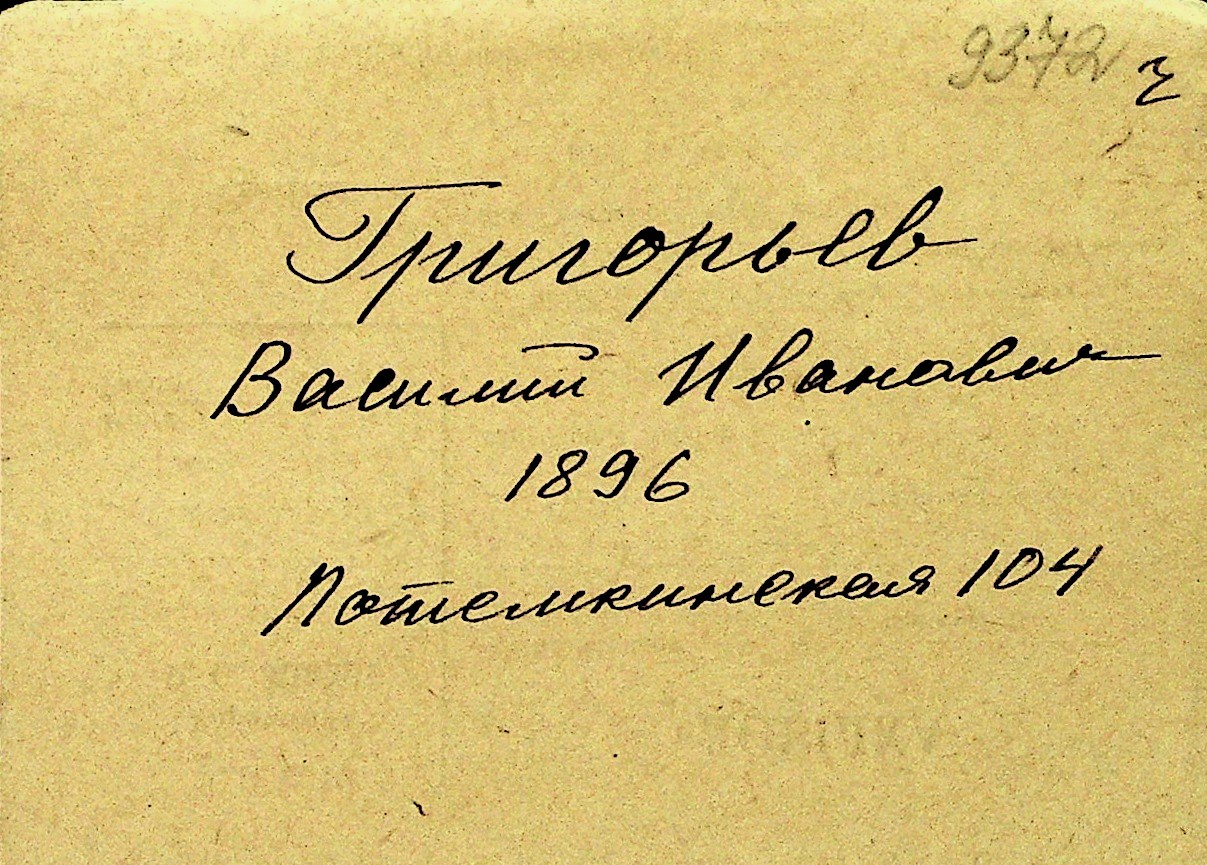 9372
Григорьев
Василий Иванович
1896
Потемкинская 104